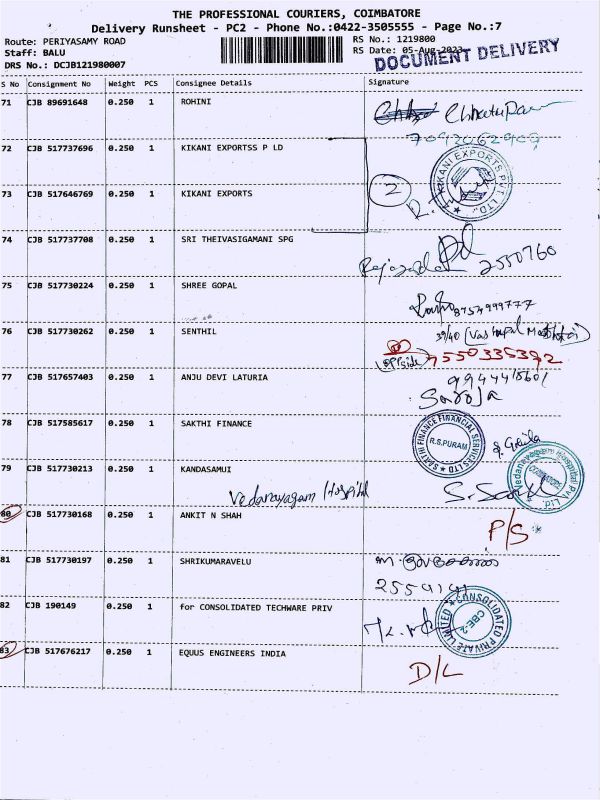 THE PROFESSIONAL COURIERS, COIMBATORE
Delivery Runsheet - PC2 - Phone No.:0422-3505555 - Page No.:7
Route: PERIYASAMY ROAD RS No.: 1219800
Staff: BALU RS Date: 05-Aug-2023
DRS No.: DCJB121980007 DOCUMENT DELIVERY
S No Consignment No Weight PCS Consignee Details Signature
71 CJB 89691648 0.250 1 ROHINI
72 CJB 517737696 0.250 1 KIKANI EXPORTSS P LD
KIKANI EXPORTS PVT. LTD.
73 CJB 517646769 0.250 1 KIKANI EXPORTS 2
74 CJB 517737708 0.250 1 SRI THEIVASIGAMANI SPG
2550760
75 CJB 517730224 0.250 1 SHREE GOPAL
8754999777
76 CJB 517730262 0.250 1 SENTHIL 39/40
77 CJB 517657403 0.250 1 ANJU DEVI LATURIA
Saroja
78 CJB 517585617 0.250 1 SAKTHI FINANCE
SAKTHI FINANCE FINANCIAL SERVICES LTD
R.S.PURAM
79 CJB 517730213 0.250 1 KANDASAMUI
Vedanayagam Hospital
Vedanayagam Hospital Pvt Ltd.
COIMBATORE
80 CJB 517730168 0.250 1 ANKIT N SHAH
P/S
81 CJB 517730197 0.250 1 SHRIKUMARAVELU
82 CJB 190149 0.250 1 for CONSOLIDATED TECHWARE PRIV
CONSOLIDATED PRIVATE LIMITED
CBE-2
83 CJB 517676217 0.250 1 EQUUS ENGINEERS INDIA
D/L